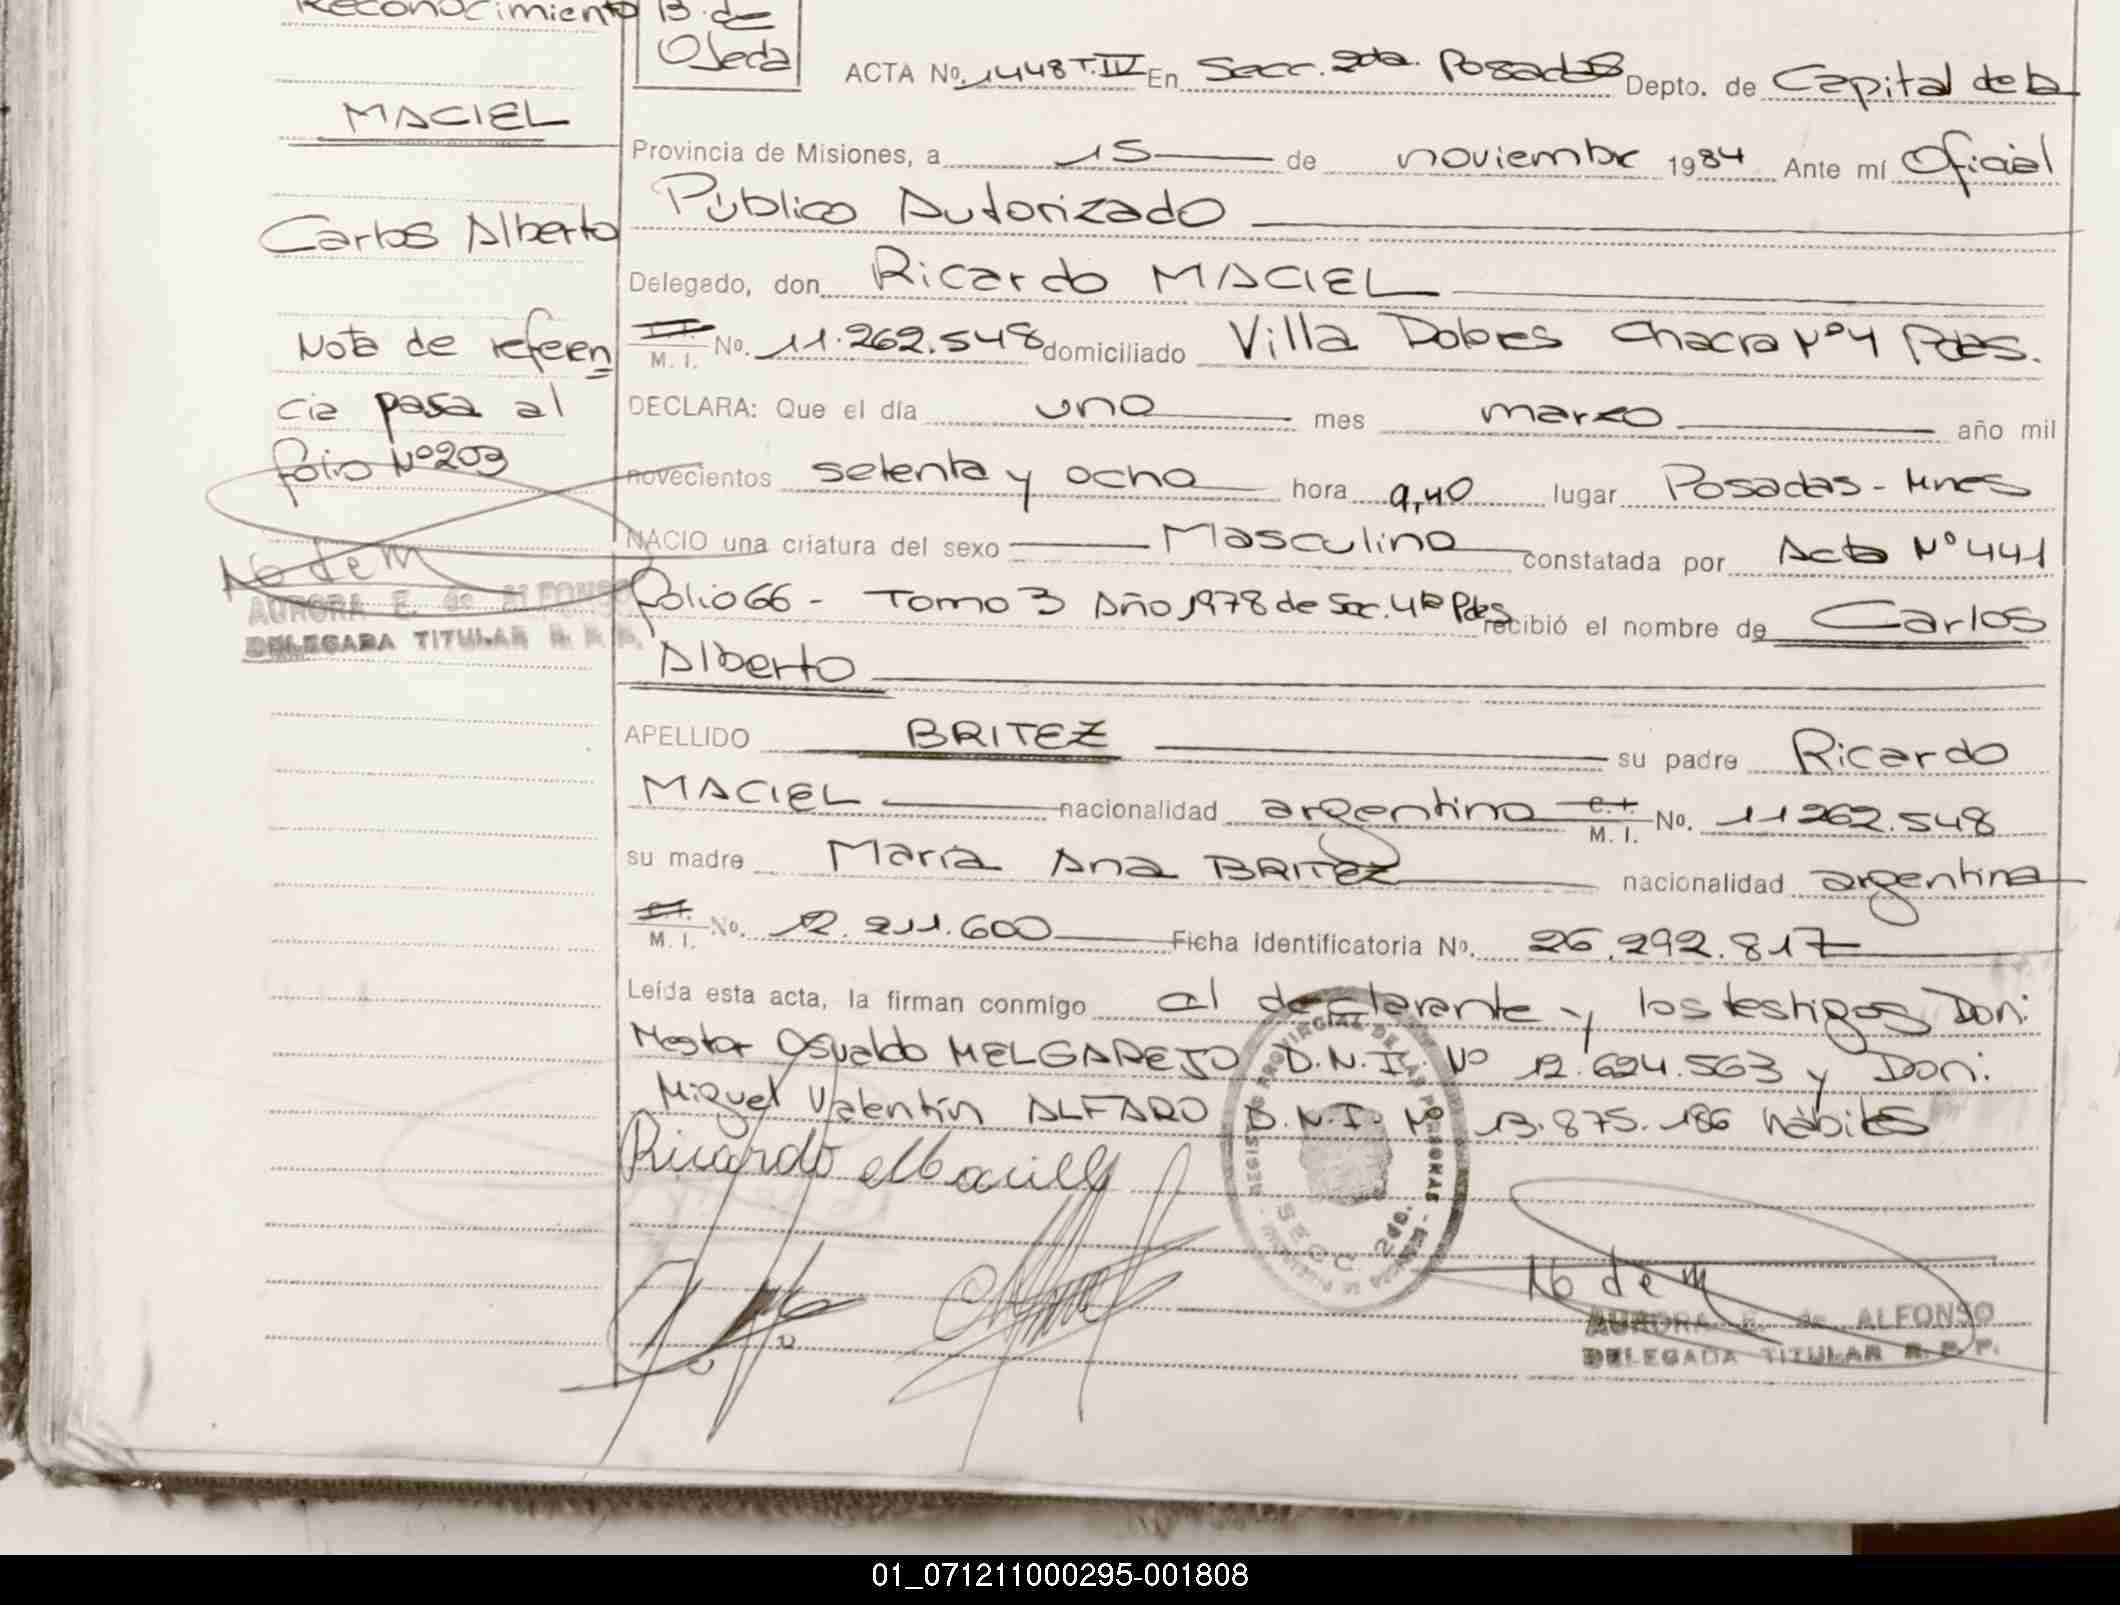 Reconocimiento
B. de
Ojeda
MACIEL
Carlos Alberto
Nota de refeen
cia pasa al
folio Nº203
AURORA E. de ALFONSO
DELEGADA TITULAR R. P. P.
ACTA Nº. 1448 T. IV En Secc. 2da. Posadas Depto. de Capital de la
Provincia de Misiones, a 15 de noviembre 1984 Ante mí Oficial
Público Autorizado
Delegado, don Ricardo MACIEL
M. I. Nº. 11.262.548 domiciliado Villa Dolores Chacra Nº4 Pdas.
DECLARA: Que el día uno mes marzo año mil
novecientos setenta y ocho hora 9,40 lugar Posadas - Mnes
NACIO una criatura del sexo Masculino constatada por Acta Nº 441
folio 66 - Tomo 3 Año 1978 de Sec. 4ta Pdas recibió el nombre de Carlos
Alberto
APELLIDO BRITEZ su padre Ricardo
MACIEL nacionalidad argentino C. I. M. I. Nº. 11262.548
su madre María Ana BRITEZ nacionalidad argentina
M. I. Nº. 12.211.600 Ficha Identificatoria Nº. 26.292.817
Leída esta acta, la firman conmigo al declarante y los testigos Don:
Nestor Osvaldo MELGAREJO D.N.I. Nº 12.624.563 y Don:
Miguel Valentín ALFARO D.N.I. Nº 13.875.186 hábiles
Ricardo Maciel
REGISTRO PROVINCIAL DE LAS PERSONAS
SECC. 2da.
AURORA E. de ALFONSO
DELEGADA TITULAR R. P. P.
01_071211000295-001808